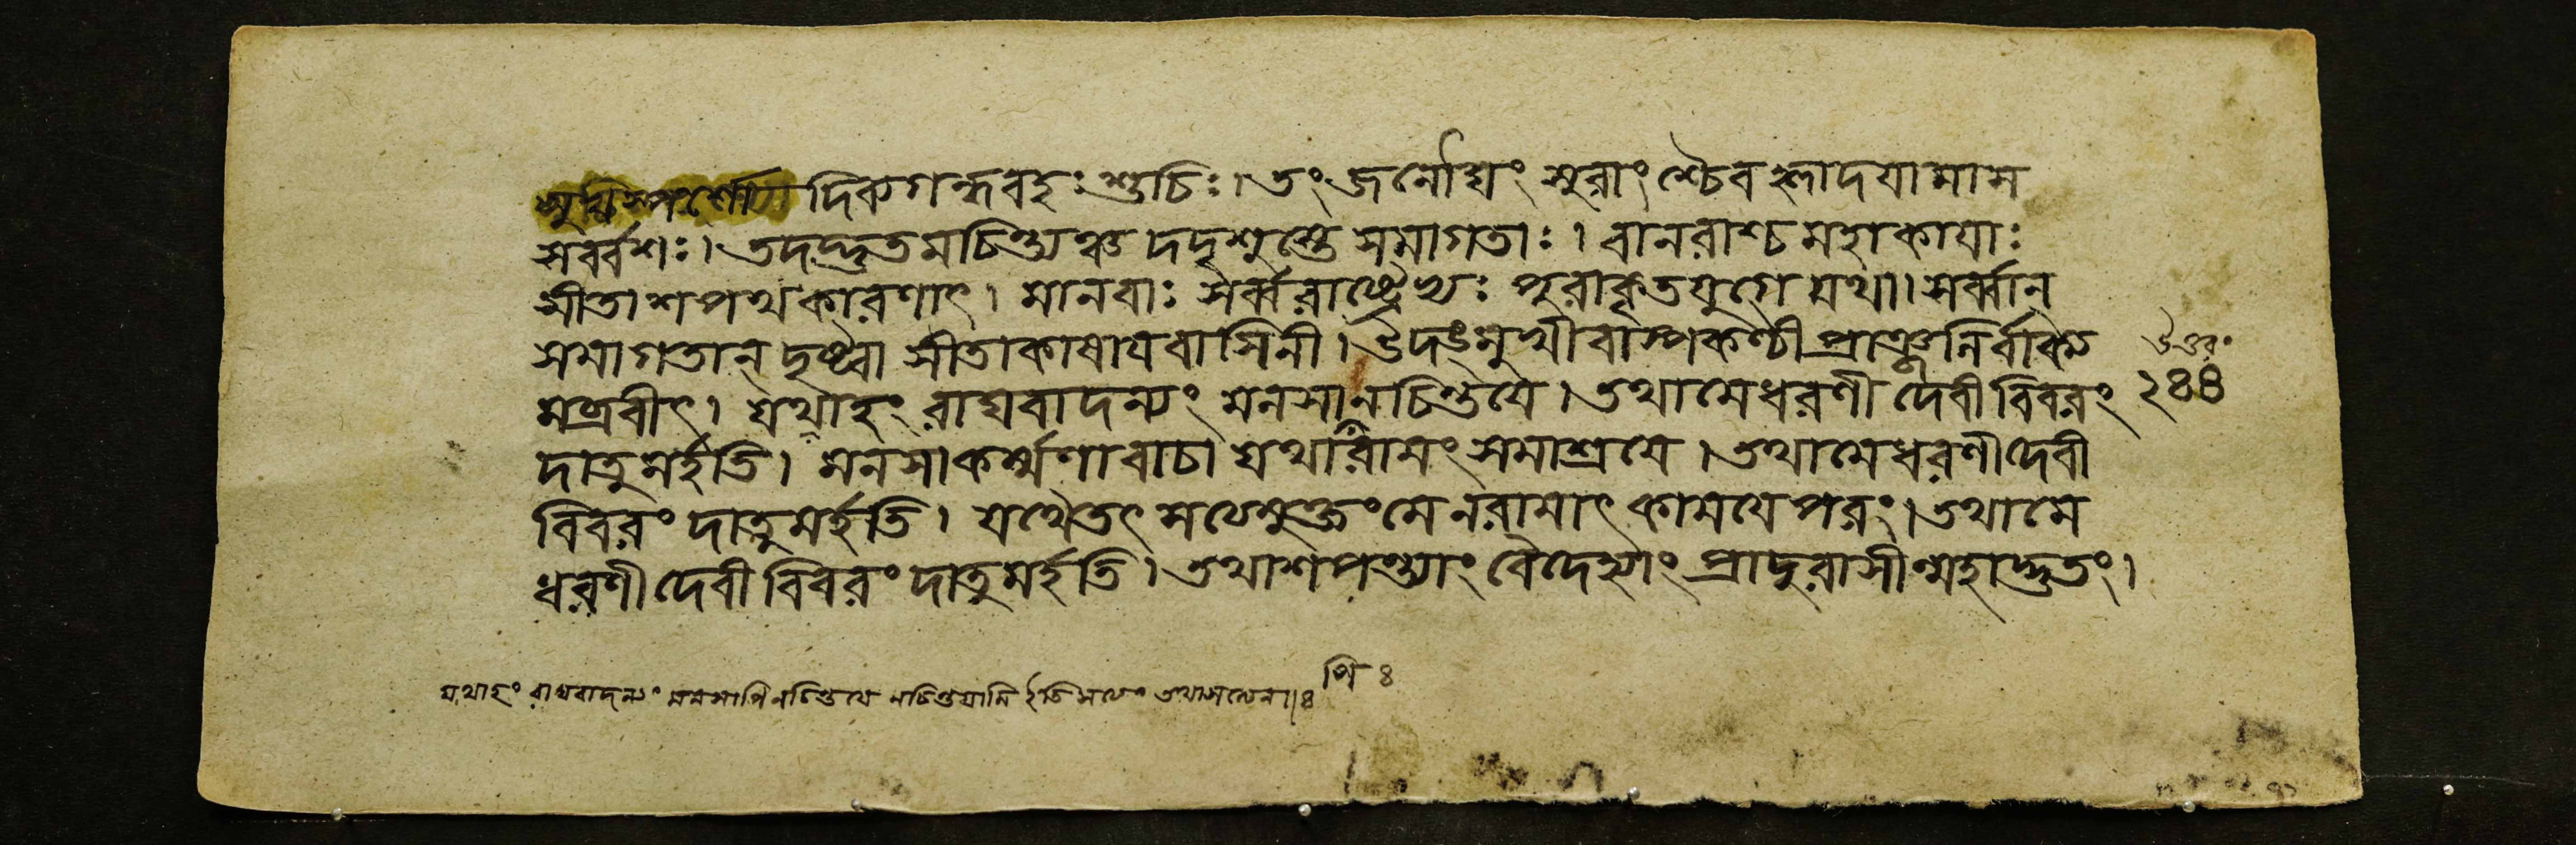 সুখস্পর্শোথ দিব্যগন্ধবহঃ শুচিঃ। তং জনৌঘং সুরাংশ্চৈব হ্লাদয়ামাস
সর্ব্বশঃ। তদদ্ভুতমচিন্ত্যঞ্চ দদৃশুস্তে সমাগতাঃ। বানরাশ্চ মহাকায়াঃ
সীতাশপথকারণাৎ। মানবাঃ সর্ব্বরাষ্ট্রেভ্যঃ পুরাকৃতযুগে যথা। সর্ব্বান্
সমাগতান্ দৃষ্ট্বা সীতাকাষায়বাসিনী। উদঙ্মুখী বাস্পকণ্ঠী প্রাঞ্জলির্বাক্য
মব্রবীৎ। যথাহং রাঘবাদন্যং মনসা ন চিন্তয়ে। তথা মে ধরণী দেবী বিবরং
দাতুমর্হতি। মনসা কর্ম্মণা বাচা যথা রামং সমাশ্রয়ে। তথা মে ধরণী দেবী
বিবরং দাতুমর্হতি। যথৈতৎ সত্যমুক্তং মে ন রামাৎ কাময়ে পরং। তথা মে
ধরণী দেবী বিবরং দাতুমর্হতি। তথা শপন্ত্যাং বৈদেহ্যাং প্রাদুরাসীন্মহাদ্ভুতং।
উত্তর॰
২৪৪
পি ৪
যথাহং রাঘবাদন্যং মনসাপি ন চিন্তয়ে ন চিন্তয়ামি